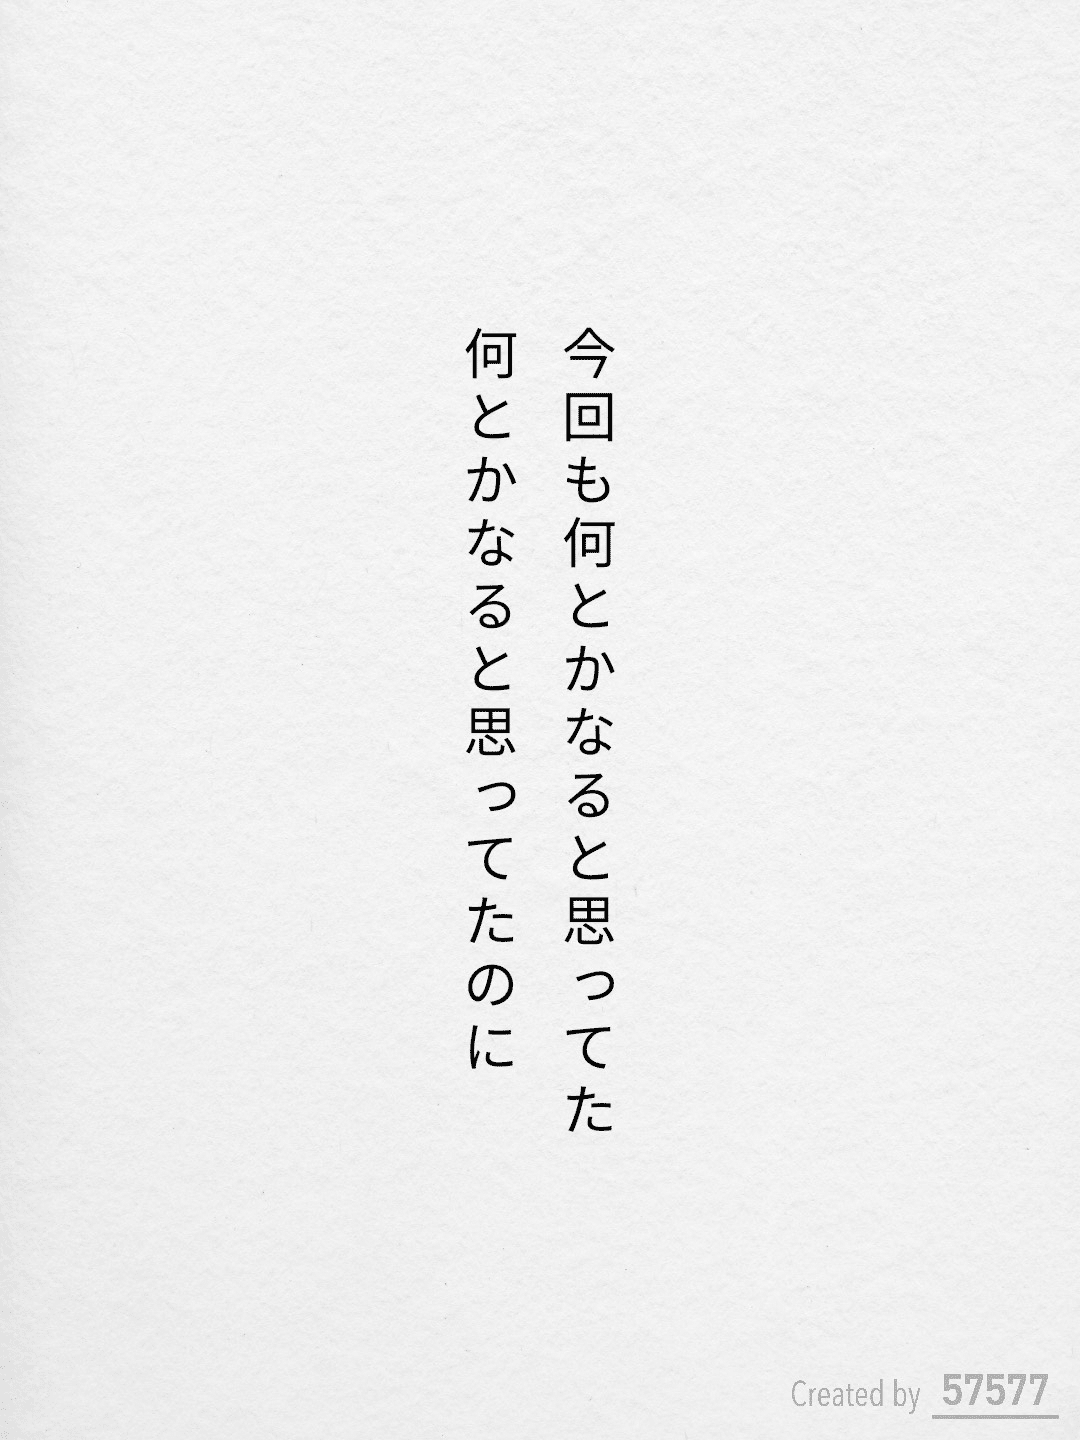 今回も何とかなると思ってた
何とかなると思ってたのに
Created by 57577